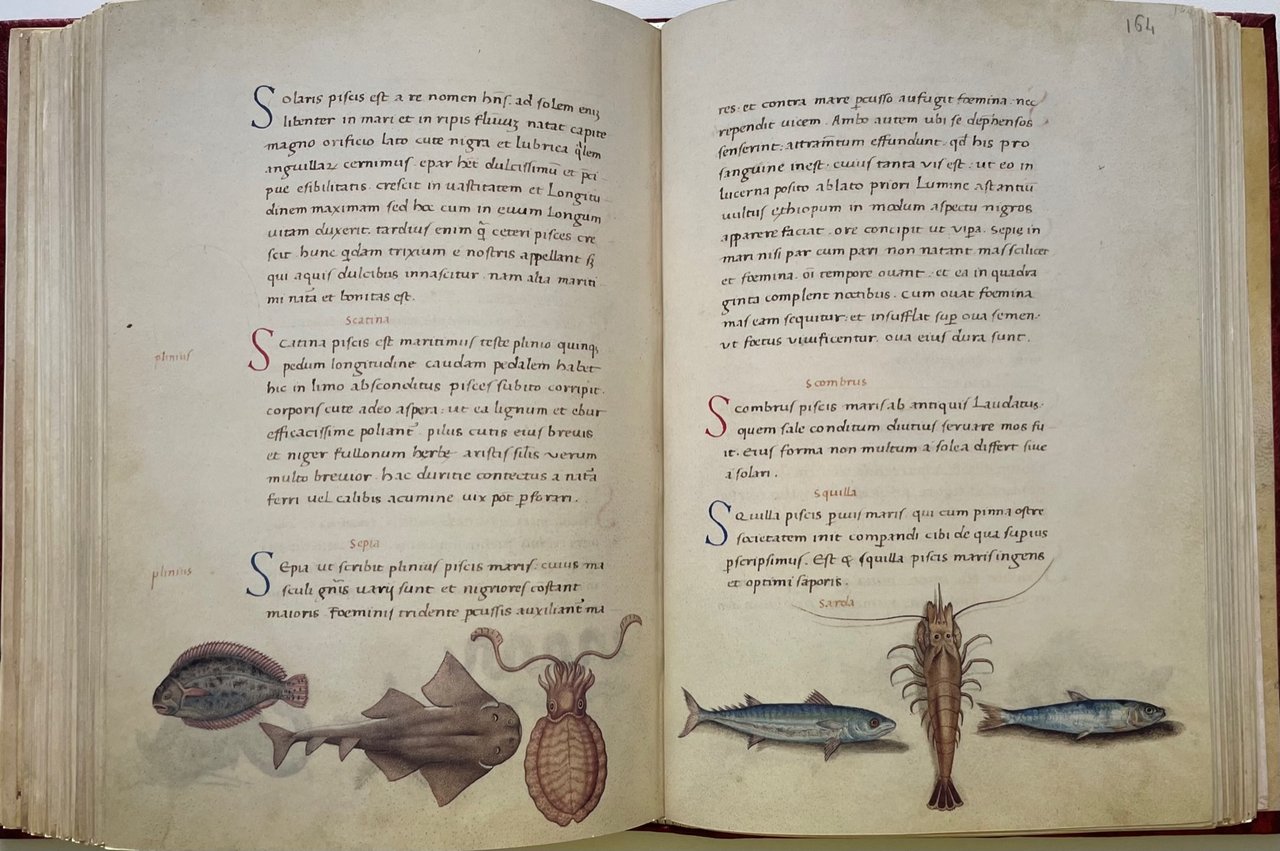 Solaris piscis est a re nomen hn̄s. ad solem eniꝫ
libenter in mari et in ripis fluuiuꝫ natat capite
magno orificio lato cute nigra et lubrica q̄lem
anguillaꝝ cernimus. epar het dulcissimū et p̄ci-
pue esibilitatis. crescit in uastitatem et Longitu
dinem maximam sed hoc cum in euum Longum
uitam duxerit. tardius enim q̄ ceteri pisces cre
scit. hunc qdam trixium e nostris appellant sꝫ
qui aquis dulcibus innascitur. nam alia mariti-
mi natā et bonitas est.
Scatina
plinius
Scatina piscis est maritimus teste plinio quinqꝫ
pedum longitudine caudam pedalem habet
hic in limo absconditus pisces subito corripit.
corporis cute adeo aspera: ut ea lignum et ebur
efficacissime poliant̄. pilus cutis eius breuis
et niger fullonum herbe aristis silis verum
multo breuior. hac duritie contectus a natā
ferri vel calibis acumine uix pōt pforari.
Sepia
plinius
Sepia ut scribit plinius piscis maris: cuius ma
sculi gn̄is uarij sunt et nigriores cōstant
maioris. foeminis tridente pcussis auxiliant̄ ma
164
res: et contra mare pcusso aufugit foemina. nec
rependit uicem. Ambo autem ubi se dephensos
senserint: attramtum effundunt. qd his pro
sanguine inest. cuius tanta vis est: ut eo in
lucerna posito ablato priori Lumine astantiū
uultus ethiopum in modum aspectu nigros
apparere faciat. ore concipit ut vipa. Sepie in
mari nisi par cum pari non natant mas scilicet
et foemina. oī tempore ouant: et ea in quadra
ginta complent noctibus. cum ouat foemina
mas eam sequitur: et insufflat sup oua semen:
vt foetus viuificentur. oua eius dura sunt.
Scombrus
Scombrus piscis maris ab antiquis Laudatus.
quem sale conditum diutius seruare mos fu
it. eius forma non multum a solea differt siue
a solari.
Squilla
Squilla piscis puus maris. qui cum pinna ostre
societatem init compandi cibi de qua supius
pscripsimus. Est & squilla piscis maris ingens
et optimi saporis.
Sarda